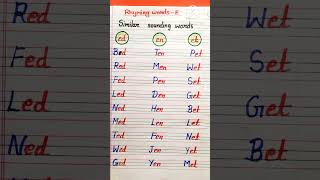 Rhyming words - E
Similar sounding words
ed en et
Bed Ten Pet
Red Men Wet
Fed Pen Set
Led Den Get
Ned Hen Bet
Med Len Let
Ted Fen Net
Wed Jen Yet
Ged Yen Met
Red
Fed
Led
Ned
Wet
Set
Get
Bet